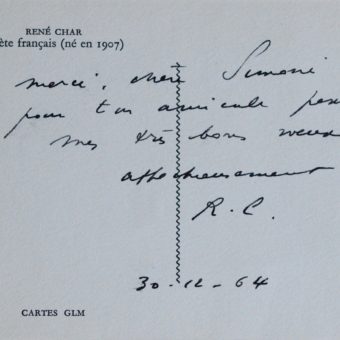 RENÉ CHAR
ète français (né en 1907)
merci, chère Simone
pour ton amicale pen
mes très bons voeux
affectueusement
R. C.
30-12-64
CARTES GLM